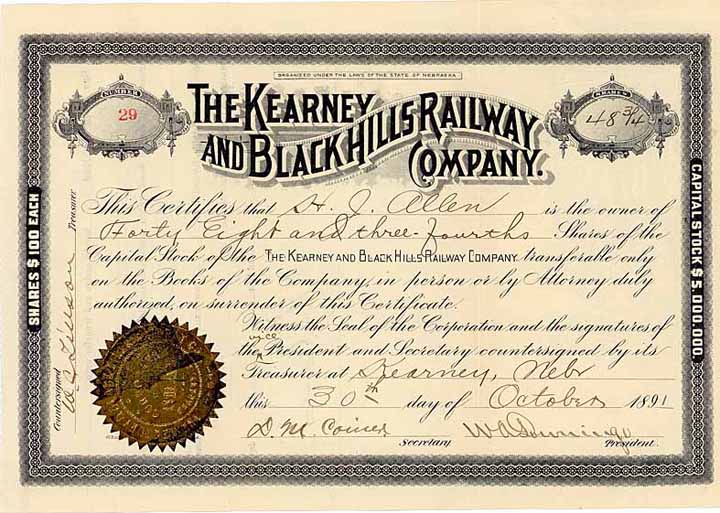 ORGANIZED UNDER THE LAWS OF THE STATE OF NEBRASKA.
NUMBER
29
SHARES
48 3/4
THE KEARNEY RAILWAY
AND BLACK HILLS COMPANY.
This Certifies that H. J. Allen is the owner of
Forty Eight and three-fourths Shares of the
Capital Stock of the THE KEARNEY AND BLACK HILLS RAILWAY COMPANY transferable only
on the Books of the Company, in person or by Attorney duly
authorized, on surrender of this Certificate.
Witness the Seal of the Corporation and the signatures of
the vice President and Secretary countersigned by its
Treasurer at Kearney, Nebr
this 30th day of October 1891
Secretary
President.
Countersigned Treasurer
SHARES $100 EACH
CAPITAL STOCK $5,000,000.